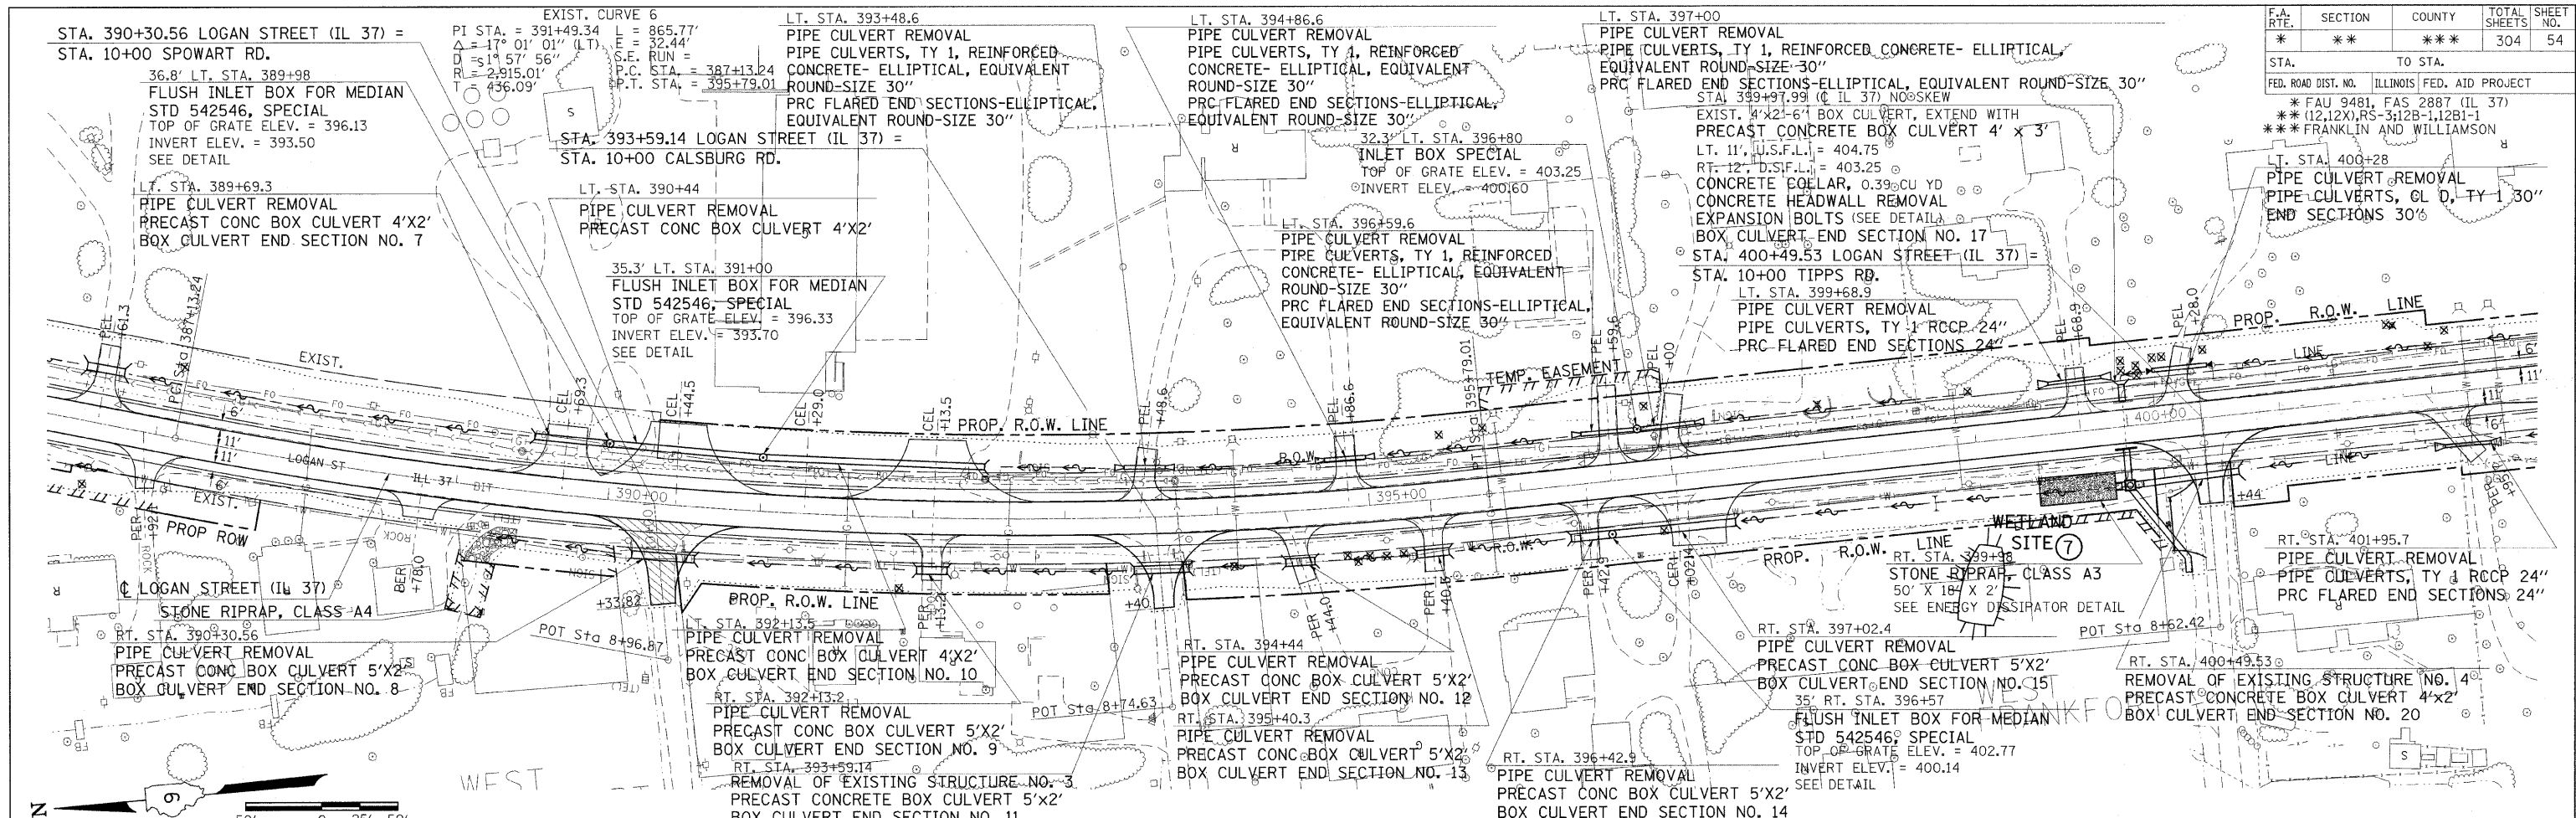 STA. 390+30.56 LOGAN STREET (IL 37) =
STA. 10+00 SPOWART RD.
36.8' LT. STA. 389+98
FLUSH INLET BOX FOR MEDIAN
STD 542546, SPECIAL
TOP OF GRATE ELEV. = 396.13
INVERT ELEV. = 393.50
SEE DETAIL
LT. STA. 389+69.3
PIPE CULVERT REMOVAL
PRECAST CONC BOX CULVERT 4'X2'
BOX CULVERT END SECTION NO. 7
EXIST. CURVE 6
PI STA. = 391+49.34
Δ = 17° 01' 01" (LT)
D = 1° 57' 56"
R = 2,915.01'
T = 436.09'
L = 865.77'
E = 32.44'
S.E. RUN =
P.C. STA. = 387+13.24
P.T. STA. = 395+79.01
LT. STA. 393+48.6
PIPE CULVERT REMOVAL
PIPE CULVERTS, TY 1, REINFORCED
CONCRETE- ELLIPTICAL, EQUIVALENT
ROUND-SIZE 30"
PRC FLARED END SECTIONS-ELLIPTICAL,
EQUIVALENT ROUND-SIZE 30"
STA. 393+59.14 LOGAN STREET (IL 37) =
STA. 10+00 CALSBURG RD.
LT. STA. 390+44
PIPE CULVERT REMOVAL
PRECAST CONC BOX CULVERT 4'X2'
35.3' LT. STA. 391+00
FLUSH INLET BOX FOR MEDIAN
STD 542546, SPECIAL
TOP OF GRATE ELEV. = 396.33
INVERT ELEV. = 393.70
SEE DETAIL
LT. STA. 394+86.6
PIPE CULVERT REMOVAL
PIPE CULVERTS, TY 1, REINFORCED
CONCRETE- ELLIPTICAL, EQUIVALENT
ROUND-SIZE 30"
PRC FLARED END SECTIONS-ELLIPTICAL,
EQUIVALENT ROUND-SIZE 30"
32.3' LT. STA. 396+80
INLET BOX SPECIAL
TOP OF GRATE ELEV. = 403.25
INVERT ELEV. = 400.60
LT. STA. 396+59.6
PIPE CULVERT REMOVAL
PIPE CULVERTS, TY 1, REINFORCED
CONCRETE- ELLIPTICAL, EQUIVALENT
ROUND-SIZE 30"
PRC FLARED END SECTIONS-ELLIPTICAL,
EQUIVALENT ROUND-SIZE 30"
LT. STA. 397+00
PIPE CULVERT REMOVAL
PIPE CULVERTS, TY 1, REINFORCED CONCRETE- ELLIPTICAL,
EQUIVALENT ROUND-SIZE 30"
PRC FLARED END SECTIONS-ELLIPTICAL, EQUIVALENT ROUND-SIZE 30"
STA. 399+97.99 (℄ IL 37) NO SKEW
EXIST. 4'X2'-6" BOX CULVERT, EXTEND WITH
PRECAST CONCRETE BOX CULVERT 4' x 3'
LT. 11', U.S.F.L. = 404.75
RT. 12', D.S.F.L. = 403.25
CONCRETE COLLAR, 0.39 CU YD
CONCRETE HEADWALL REMOVAL
EXPANSION BOLTS (SEE DETAIL)
BOX CULVERT END SECTION NO. 17
STA. 400+49.53 LOGAN STREET (IL 37) =
STA. 10+00 TIPPS RD.
LT. STA. 399+68.9
PIPE CULVERT REMOVAL
PIPE CULVERTS, TY 1 RCCP 24"
PRC FLARED END SECTIONS 24"
F.A. RTE. SECTION COUNTY TOTAL SHEETS SHEET NO.
* ** *** 304 54
STA. TO STA.
FED. ROAD DIST. NO. ILLINOIS FED. AID PROJECT
* FAU 9481, FAS 2887 (IL 37)
** (12,12X),RS-3;12B-1,12B1-1
*** FRANKLIN AND WILLIAMSON
LT. STA. 400+28
PIPE CULVERT REMOVAL
PIPE CULVERTS, CL D, TY 1 30"
END SECTIONS 30"
PEL +61.3
PC Sta 387+13.24
EXIST.
CEL +69.3
CEL +44.5
CEL +29.0
CEL +13.5
PROP. R.O.W. LINE
PEL +48.6
PEL +86.6
R.O.W.
PT Sta 395+79.01
TEMP. EASEMENT
PEL +59.6
PEL +00
PEL +68.9
PEL +28.0
PROP. R.O.W. LINE
LINE
LOGAN ST
ILL 37 BIT
390+00
395+00
400+00
6'
11'
11'
6'
6'
11'
11'
6'
EXIST.
PROP ROW
PER +92.1
ROCK
BER +78.0
ROCK
SIGN
+33.82
PROP. R.O.W. LINE
PER +13.2
SIGN
+40
PER +44.0
PER +40.3
R.O.W.
PER +42.9
CER +02.4
PROP. R.O.W. LINE
WETLAND
SITE 7
+44
LINE
PER +95.7
℄ LOGAN STREET (IL 37)
STONE RIPRAP, CLASS A4
RT. STA. 390+30.56
PIPE CULVERT REMOVAL
PRECAST CONC BOX CULVERT 5'X2'
BOX CULVERT END SECTION NO. 8
POT Sta 8+96.87
LT. STA. 392+13.5
PIPE CULVERT REMOVAL
PRECAST CONC BOX CULVERT 4'X2'
BOX CULVERT END SECTION NO. 10
RT. STA. 392+13.2
PIPE CULVERT REMOVAL
PRECAST CONC BOX CULVERT 5'X2'
BOX CULVERT END SECTION NO. 9
RT. STA. 393+59.14
REMOVAL OF EXISTING STRUCTURE NO. 3
PRECAST CONCRETE BOX CULVERT 5'x2'
BOX CULVERT END SECTION NO. 11
POT Sta 8+74.63
RT. STA. 394+44
PIPE CULVERT REMOVAL
PRECAST CONC BOX CULVERT 5'X2'
BOX CULVERT END SECTION NO. 12
RT. STA. 395+40.3
PIPE CULVERT REMOVAL
PRECAST CONC BOX CULVERT 5'X2'
BOX CULVERT END SECTION NO. 13
RT. STA. 396+42.9
PIPE CULVERT REMOVAL
PRECAST CONC BOX CULVERT 5'X2'
BOX CULVERT END SECTION NO. 14
RT. STA. 399+98
STONE RIPRAP, CLASS A3
50' X 18' X 2'
SEE ENERGY DISSIPATOR DETAIL
RT. STA. 397+02.4
PIPE CULVERT REMOVAL
PRECAST CONC BOX CULVERT 5'X2'
BOX CULVERT END SECTION NO. 15
35' RT. STA. 396+57
FLUSH INLET BOX FOR MEDIAN
STD 542546, SPECIAL
TOP OF GRATE ELEV. = 402.77
INVERT ELEV. = 400.14
SEE DETAIL
POT Sta 8+62.42
RT. STA. 401+95.7
PIPE CULVERT REMOVAL
PIPE CULVERTS, TY 1 RCCP 24"
PRC FLARED END SECTIONS 24"
RT. STA. 400+49.53
REMOVAL OF EXISTING STRUCTURE NO. 4
PRECAST CONCRETE BOX CULVERT 4'x2'
BOX CULVERT END SECTION NO. 20
WEST
WEST
N
9
50' 0 25' 50'